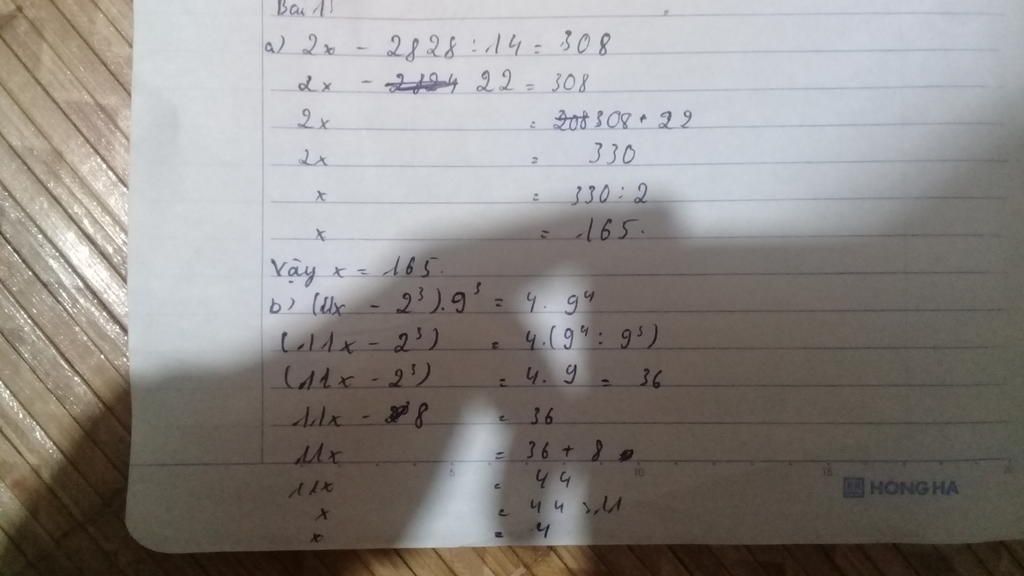 Bài 1:
a) 2x - 2828 : 14 = 308
2x - 22 = 308
2x = 308 + 22
2x = 330
x = 330 : 2
x = 165.
Vậy x = 165.
b) (11x - 2³).9³ = 4. 9⁴
(11x - 2³) = 4.(9⁴ : 9³)
(11x - 2³) = 4. 9 = 36
11x - 8 = 36
11x = 36 + 8
11x = 44
x = 44 : 11
x = 4
5 10 15
HONG HA